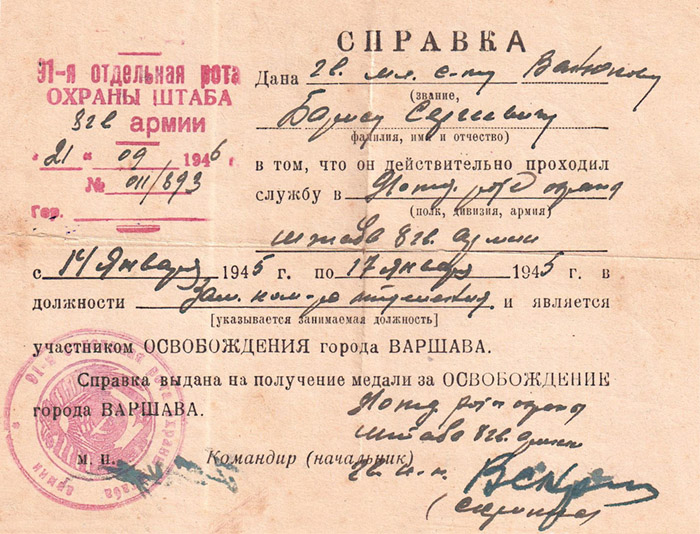 СПРАВКА
91-я отдельная рота
ОХРАНЫ ШТАБА
8 гв армии
"21" 09 1946
№ 011/893
Гор.
Дана гв. мл. с-ту
(звание,
Борису Сергеевичу
фамилия, имя и отчество)
в том, что он действительно проходил
службу в отд. роте охраны
(полк, дивизия, армия)
штаба 8 гв. армии
с 14 января 1945 г. по 17 января 1945 г. в
должности Зам. ком-ра отделения и является
[указывается занимаемая должность]
участником ОСВОБОЖДЕНИЯ города ВАРШАВА.
Справка выдана на получение медали за ОСВОБОЖДЕНИЕ
города ВАРШАВА.
отд. роты охраны
штаба 8 гв. армии
м. п. Командир (начальник)
гв.
91-я отдельная рота охраны штаба армии